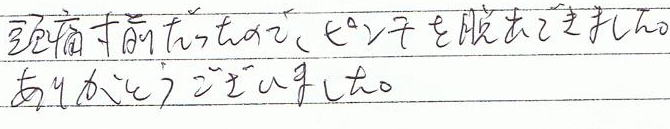 頭痛寸前だったので、ピンチを脱出できました。
ありがとうございました。